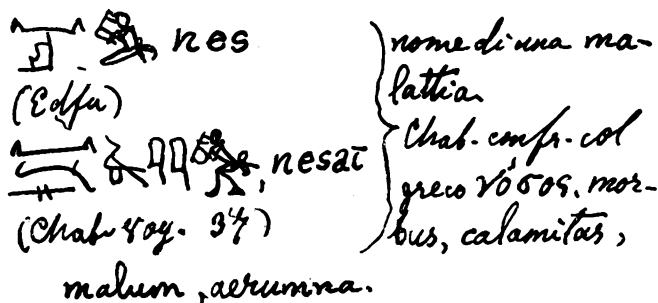 nes
(Edfu)
, nesaï
(Chab. voy.
nome di una ma-
lattia
Chab. confr. col
greco νόσος, mor-
bus, calamitas,
malum, aerumna.